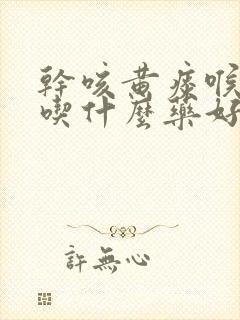 幹咳黄痰喉
喫什麼藥好
許無心